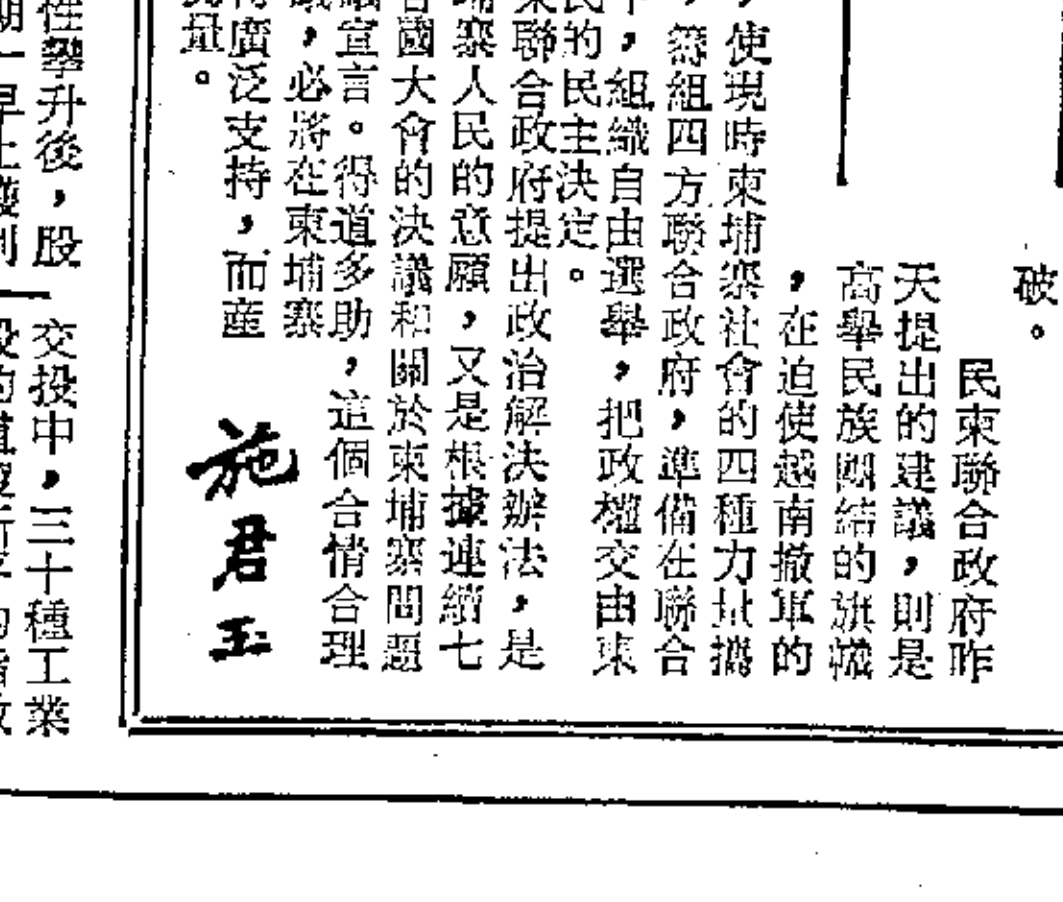 破。
民柬聯合政府昨
天提出的建議，則是
高舉民族團結的旗幟
，在迫使越南撤軍的
，使現時柬埔寨社會的四種力量携
，籌組四方聯合政府，準備在聯合
，組織自由選舉，把政權交由柬
民的民主決定。
聯合政府提出政治解決辦法，是
埔寨人民的意願，又是根據連續七
國大會的決議和關於柬埔寨問題
宣言。得道多助，這個合情合理
，必將在柬埔寨
廣泛支持，而產
量。
施君玉
性攀升後，股
交投中，三十種工業